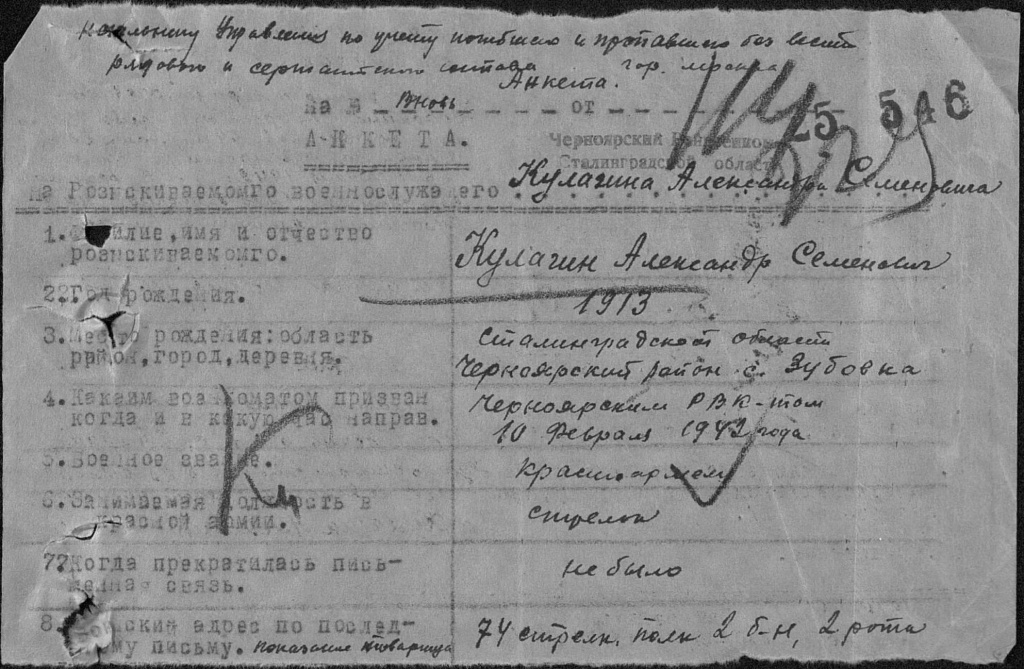 Начальнику Управления по учету погибшего и пропавшего без вести
рядового и сержантского состава гор. Москва
Анкета.
На № Вновь от
25 546
АНКЕТА.
Черноярский
Сталинградской област
На Розыскиваемомго военнослужащего Кулагина Александра Семеновича
1. Фамилие, имя и отчество Кулагин Александр Семенович
розыскиваемомго.
2? Год рождения. 1913
3. Место рождения: область Сталинградской области
район, город, деревня. Черноярский район с. Зубовка
4. Каким военкоматом призван Черноярским РВК-том
когда и в какую час направ. 10 февраля 1942 года
5. Военное звание. красноармеец
6. Занимаемая должность в стрелок
красной армии.
7? Когда прекратилась пись- не было
менная связь.
8. адрес по послед- 74 стрелк. полк 2 б-н, 2 рота
ному письму. показание товарища
Ку